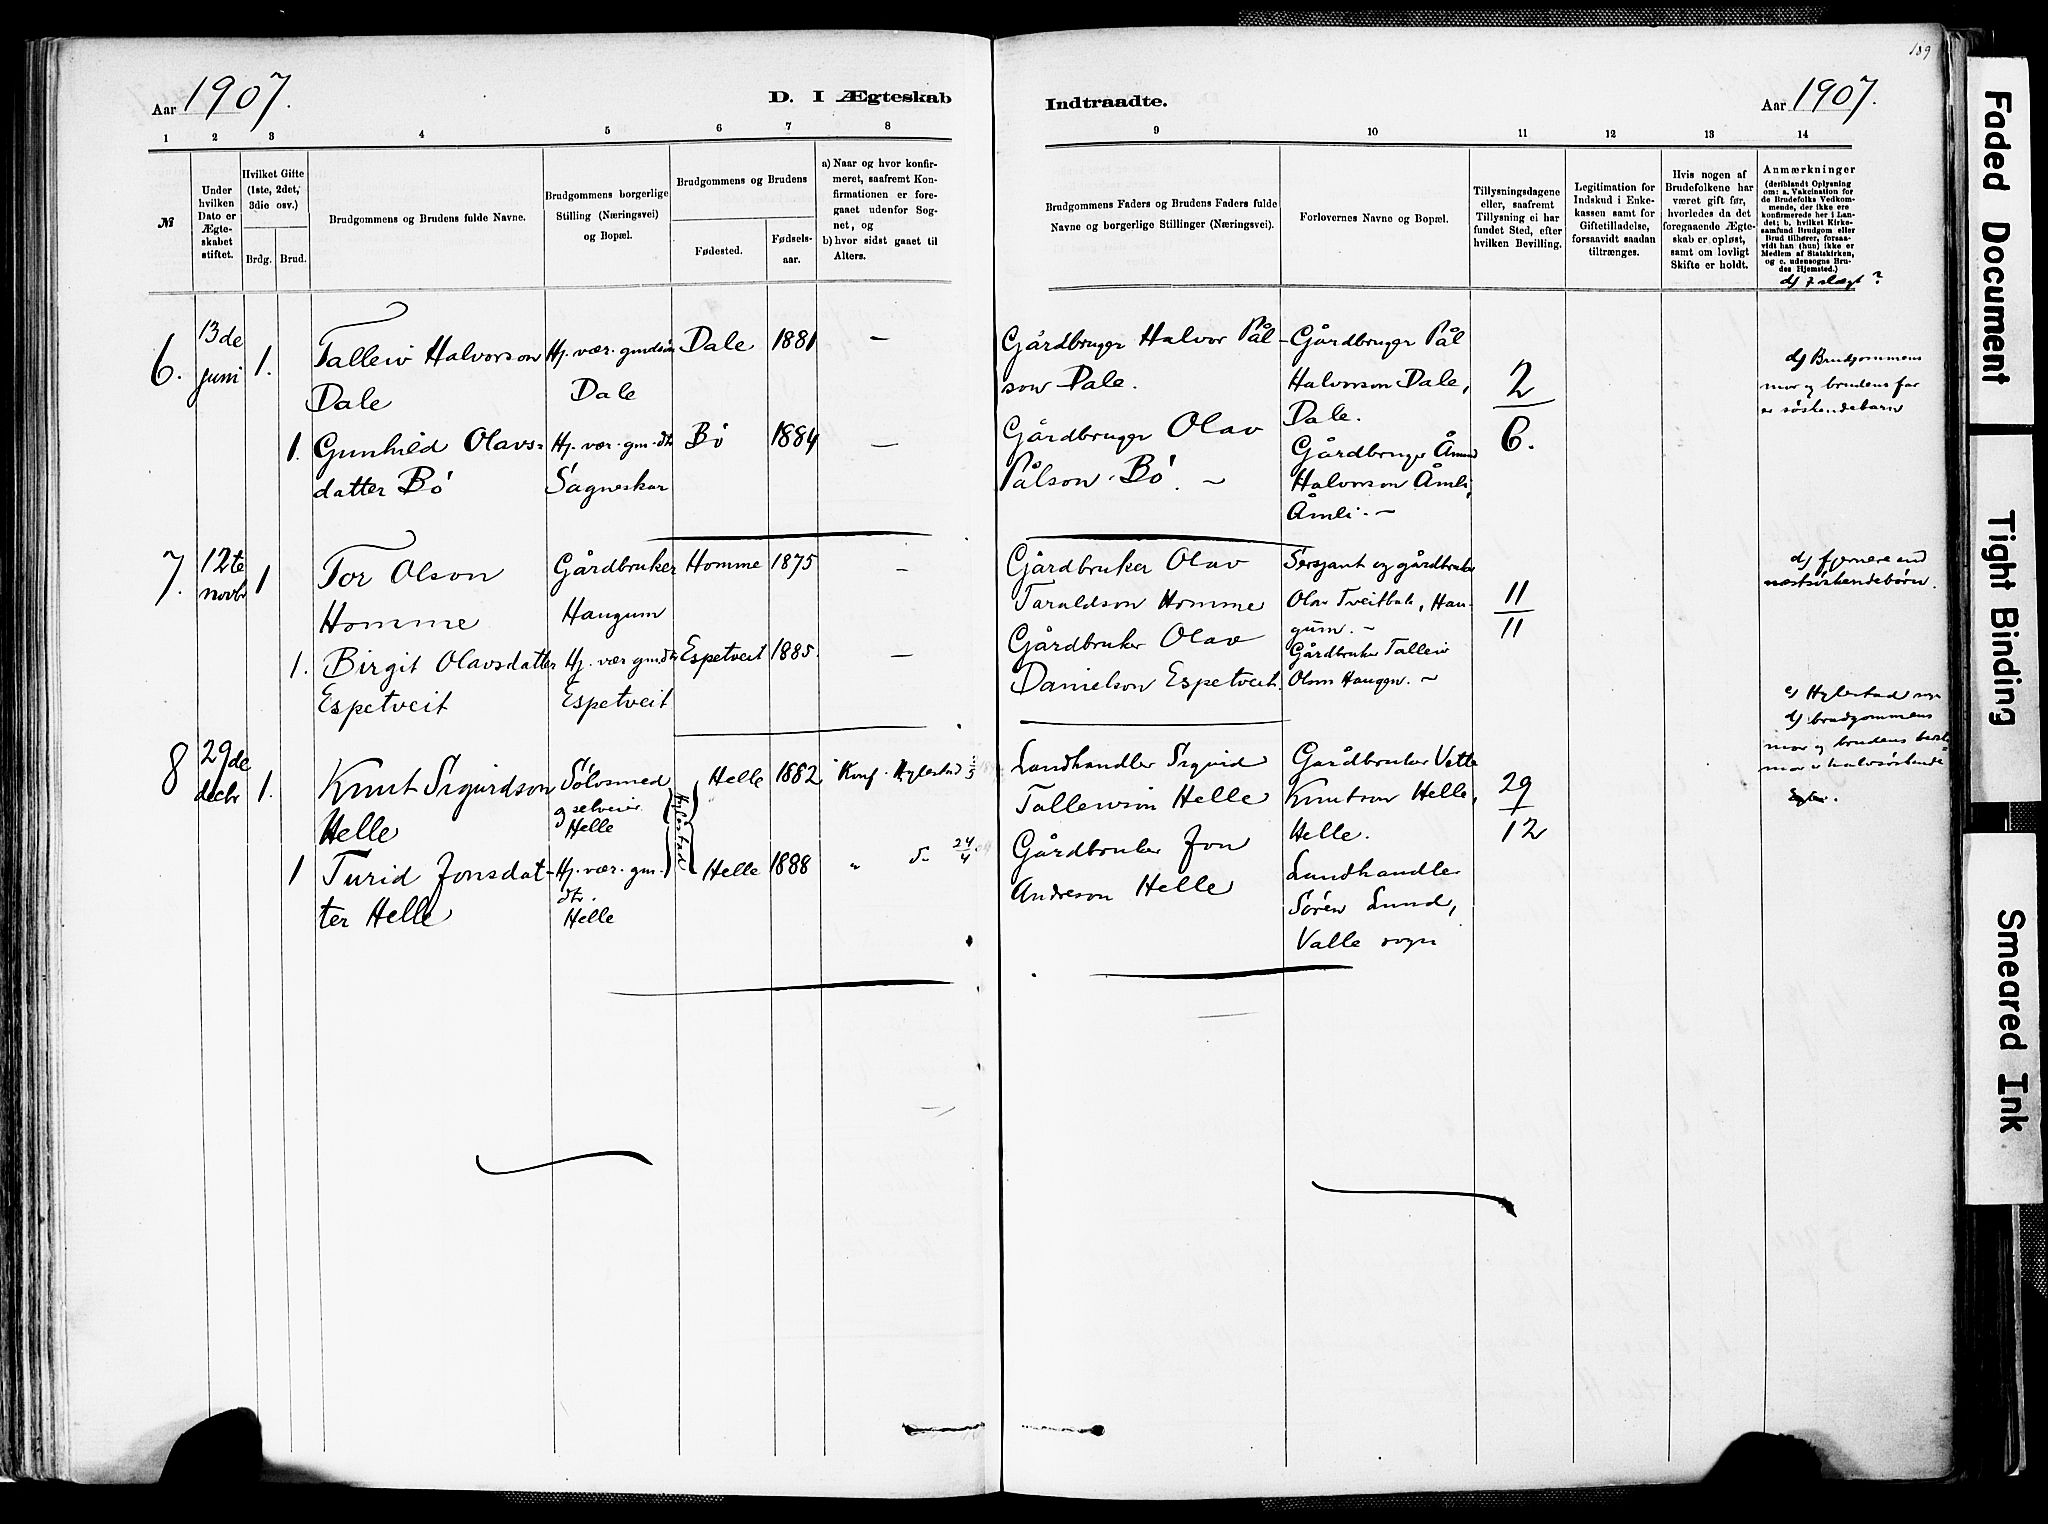 189
Aar 1907.
D. I Ægteskab
Indtraadte.
Aar 1907.
1 2 3 4 5 6 7 8 9 10 11 12 13 14
№
Under
hvilken
Dato er
Ægte-
skabet
stiftet.
Hvilket Gifte
(1ste, 2det,
3die osv.)
Brdg. Brud.
Brudgommens og Brudens fulde Navne.
Brudgommens borgerlige
Stilling (Næringsvei)
og Bopæl.
Brudgommens og Brudens
Fødested.
Fødsels-
aar.
a) Naar og hvor konfir-
meret, saafremt Kon-
firmationen er fore-
gaaet udenfor Sog-
net, og
b) hvor sidst gaaet til
Alters.
Brudgommens Faders og Brudens Faders fulde
Navne og borgerlige Stillinger (Næringsvei).
Forlovernes Navne og Bopæl.
Tillysningsdagene
eller, saafremt
Tillysning ei har
fundet Sted, efter
hvilken Bevilling.
Legitimation for
Indskud i Enke-
kassen samt for
Giftetilladelse,
forsaavidt saadan
tiltrænges.
Hvis nogen af
Brudefolkene har
været gift før,
hvorledes da det
foregaaende Ægte-
skab er opløst,
samt om lovligt
Skifte er holdt.
Anmærkninger
(deriblandt Oplysning
om: a. Vakcination for
de Brudefolks Vedkom-
mende, der ikke ere
konfirmerede her i Lan-
det; b. hvilket Kirke-
samfund Brudgom eller
Brud tilhører, forsaa-
vidt han (hun) ikke er
Medlem af Statskirken,
og c. udensogns Bru-
des Hjemsted.)
d) i slægt?
6.
13de
juni
1.
Talleiv Halvorson
Dale
Hj. vær. gmdsøn
Dale
Dale
1881
—
Gårdbruger Halvor Pål-
son Dale.
Gårdbruger Pål
Halvorson Dale,
Dale.
2
6.
d) Brudgommens
mor og brudens far
er søskendebarn
1.
Gunhild Olavs-
datter Bö
Hj. vær. gm. dtr
Sagneskar
Bö
1884
—
Gårdbruger Olav
Pålson Bö. —
Gårdbruger Åmund
Halvorson Åmli,
Åmli. —
7.
12te
novbr
1
Tor Olson
Homme
Gårdbruker
Haugum
Homme
1875
—
Gårdbruker Olav
Taraldson Homme
Sersjant og gårdbruker
Olav Tveitbak, Hau-
gum. —
11
11
d) fjernere end
næstsøskendebörn.
1.
Birgit Olavsdatter
Espetveit
Hj. vær gm. dtr
Espetveit
Espetveit
1885.
—
Gårdbruker Olav
Danielson Espetveit.
Gårdbruker Talleiv
Olson Haugen. —
8
29de
decbr
1.
Knut Sigurdson
Helle
Sölvsmed
og selveier
Helle
Hylestad
Helle
1882
Konf. Hylestad
Landhandler Sigurd
Talleivson Helle
Gårdbruker Vetle
Knutson Helle,
Helle.
29
12
c) Hylestad
d) brudgommens
mor og brudens beste
mor er halvsøskende
1
Turid Jonsdat-
ter Helle
Hj. vær. gm.
dtr.
Helle
Helle
1888
"
24
4
Gårdbruker Jon
Andreson Helle
Landhandler
Sören Lund,
Valle sogn
Faded Document
Tight Binding
Smeared Ink